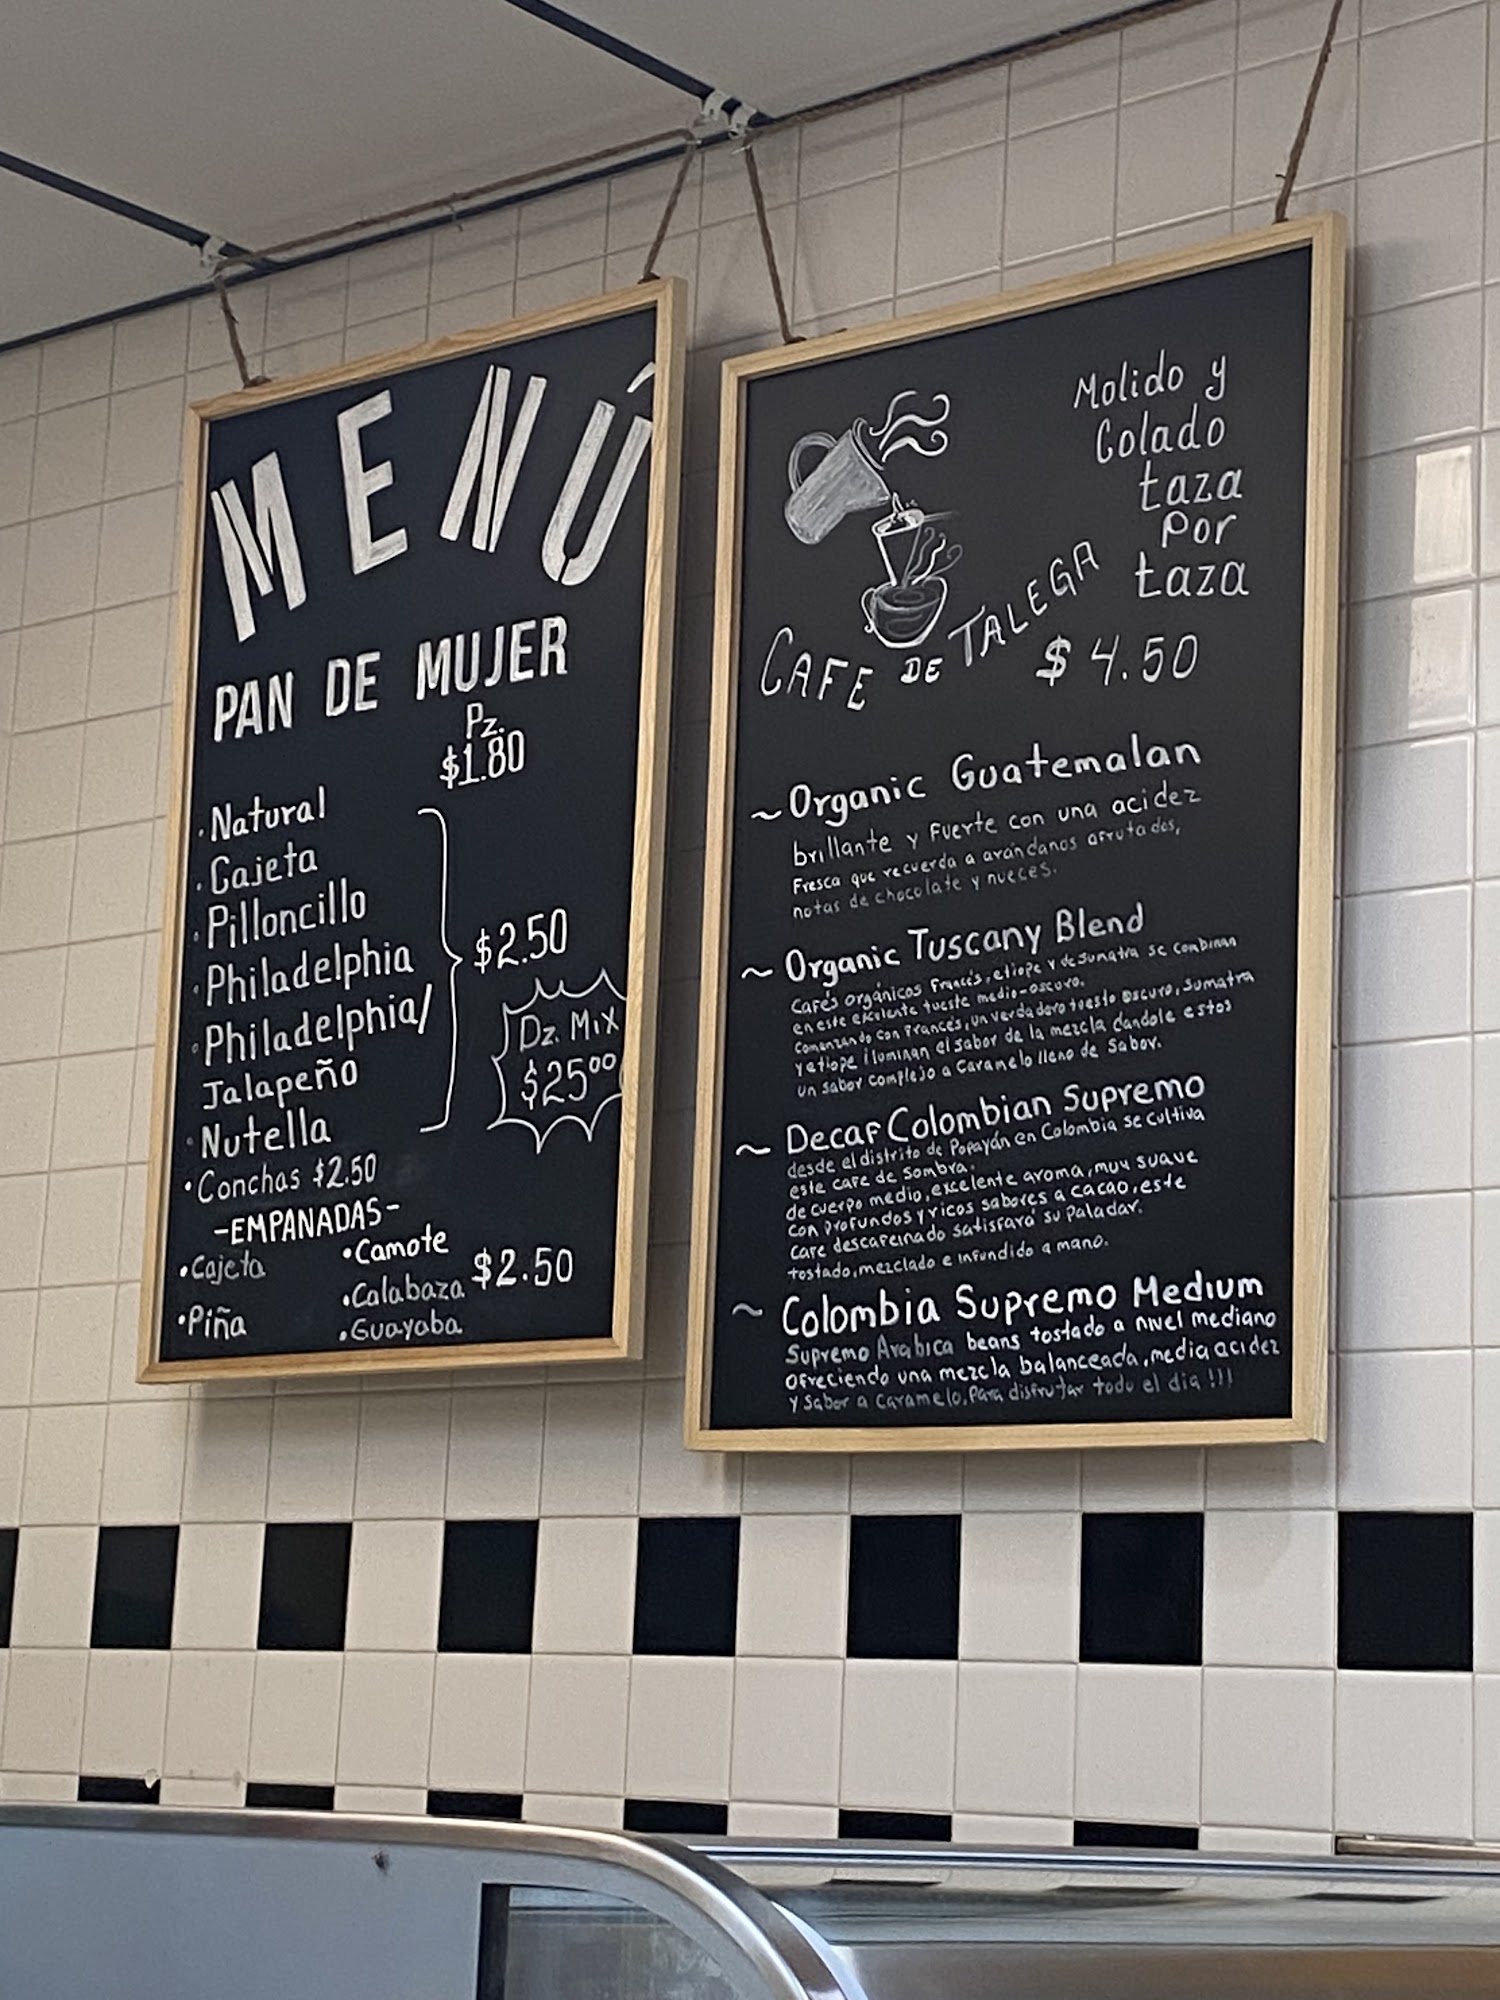 MENÚ
PAN DE MUJER
Pz.
$1.80
• Natural
• Cajeta
• Pilloncillo
• Philadelphia
• Philadelphia/
Jalapeño
• Nutella
$2.50
Dz. Mix
$25⁰⁰
• Conchas $2.50
-EMPANADAS-
• Cajeta
• Piña
• Camote
• Calabaza
• Guayaba
$2.50
Molido y
Colado
taza
Por
taza
CAFE DE TALEGA
$4.50
~ Organic Guatemalan
brillante y Fuerte con una acidez
Fresca que recuerda a arándanos afrutados,
notas de chocolate y nueces.
~ Organic Tuscany Blend
Cafés orgánicos Francés, etiope y de Sumatra se combinan
en este excelente tueste medio-oscuro.
Comenzando con Francés, un verdadero tuesto oscuro, Sumatra
y etiope iluminan el sabor de la mezcla dandole estos
un sabor complejo a Caramelo lleno de Sabor.
~ Decaf Colombian Supremo
desde el distrito de Popayán en Colombia se cultiva
este cafe de Sombra.
de cuerpo medio, excelente aroma, muy suave
con profundos y ricos sabores a cacao, este
cafe descafeinado satisfará su Paladar.
tostado, mezclado e infundido a mano.
~ Colombia Supremo Medium
Supremo Arabica beans tostado a nivel mediano
ofreciendo una mezcla balanceada, media acidez
y Sabor a Caramelo, Para disfrutar todo el dia !!!